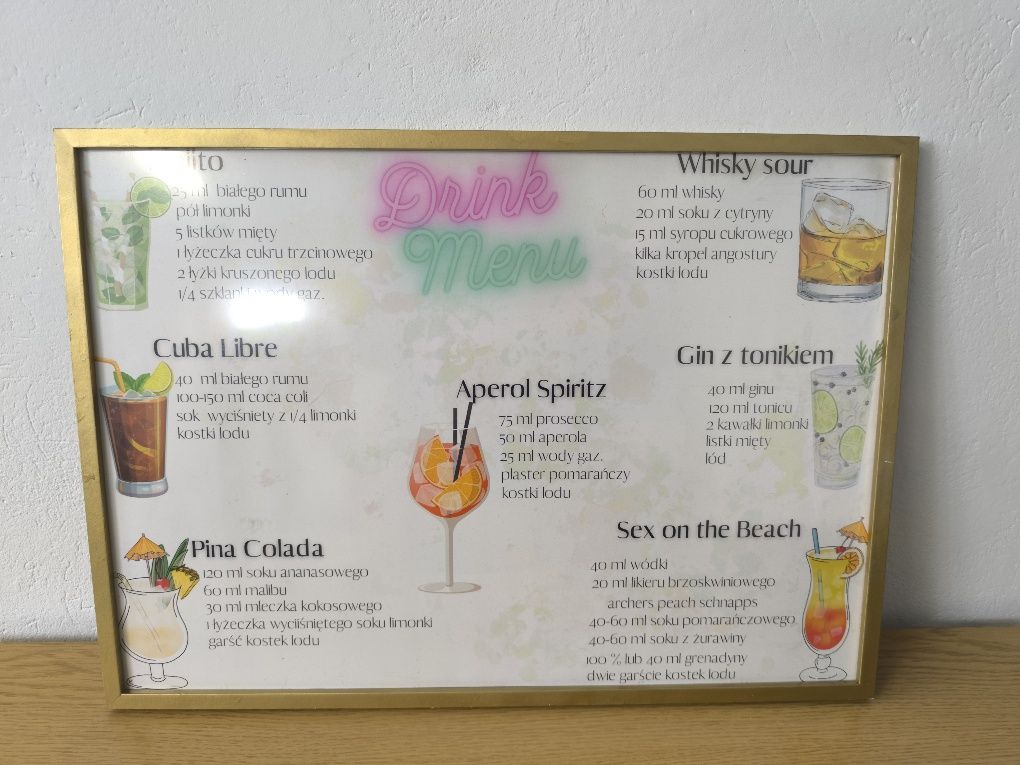 Drink
Menu
25 ml białego rumu
pół limonki
5 listków mięty
1 łyżeczka cukru trzcinowego
2 łyżki kruszonego lodu
1/4 szklanki wody gaz.
Whisky sour
60 ml whisky
20 ml soku z cytryny
15 ml syropu cukrowego
kilka kropel angostury
kostki lodu
Cuba Libre
40 ml białego rumu
100-150 ml coca coli
sok wyciśniety z 1/4 limonki
kostki lodu
Aperol Spiritz
75 ml prosecco
50 ml aperola
25 ml wody gaz.
plaster pomarańczy
kostki lodu
Gin z tonikiem
40 ml ginu
120 ml tonicu
2 kawałki limonki
listki mięty
lód
Pina Colada
120 ml soku ananasowego
60 ml malibu
30 ml mleczka kokosowego
1 łyżeczka wyciiśniętego soku limonki
garść kostek lodu
Sex on the Beach
40 ml wódki
20 ml likieru brzoskwiniowego
archers peach schnapps
40-60 ml soku pomarańczowego
40-60 ml soku z żurawiny
100 % lub 40 ml grenadyny
dwie garście kostek lodu